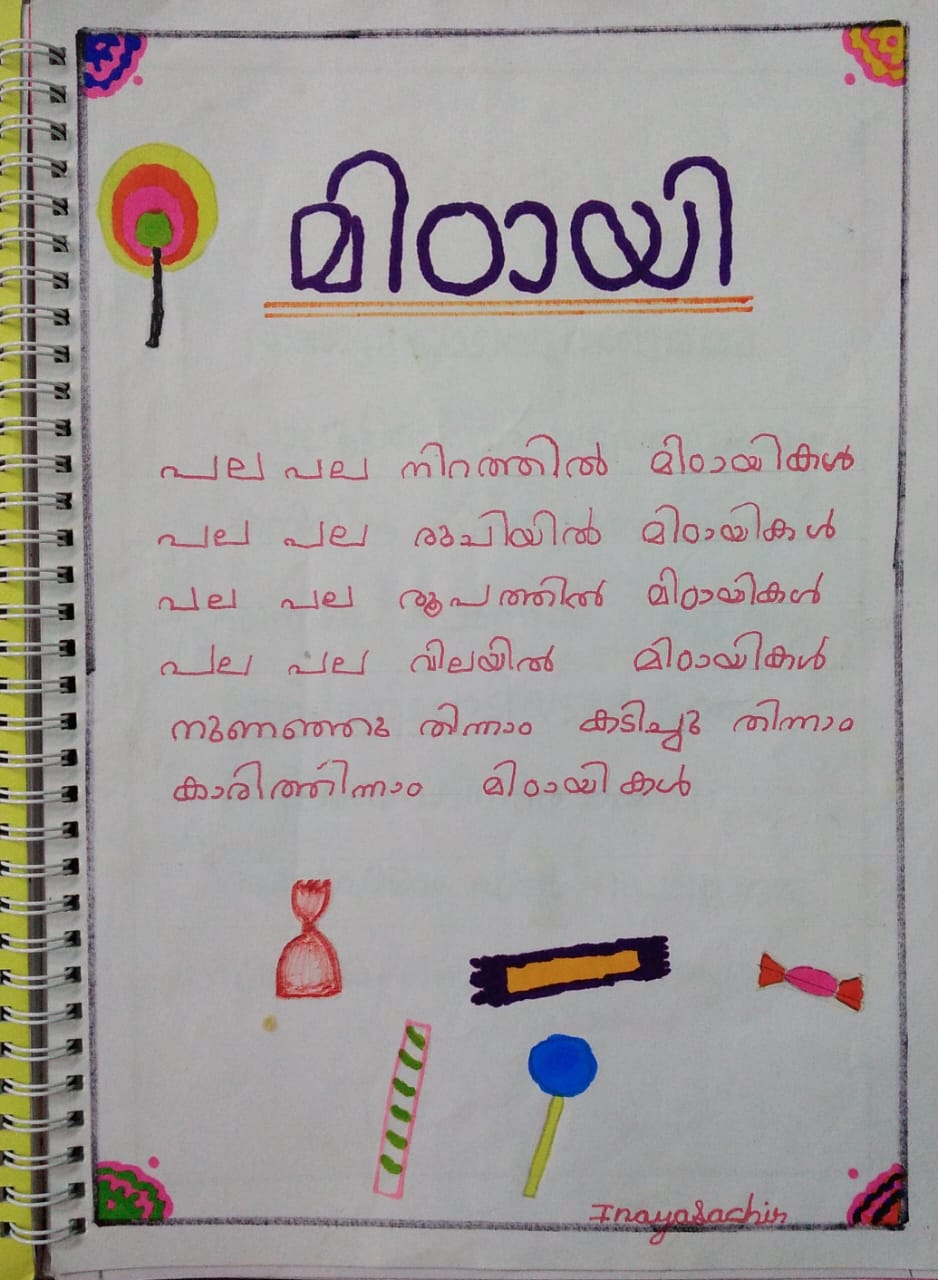 മിഠായി
പല പല നിറത്തിൽ മിഠായികൾ
പല പല രുചിയിൽ മിഠായികൾ
പല പല രൂപത്തിൽ മിഠായികൾ
പല പല വിലയിൽ മിഠായികൾ
നുണഞ്ഞു തിന്നാം കടിച്ചു തിന്നാം
കാരിത്തിന്നാം മിഠായികൾ
Inayasachin